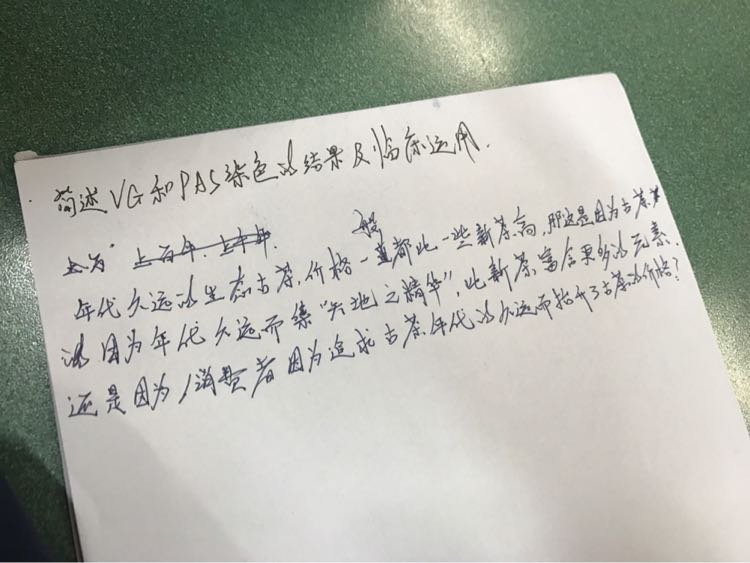 简述VG和PAS染色的结果及临床运用.
上百年.上千年. 般
年代久远的生态古茶,价格一直都比一些新茶高,那这是因为古茶
的因为年代久远而集“天地之精华”,比新茶富含更多的元素.
还是因为消费者因为追求古茶年代的久远而抬升了古茶的价格?